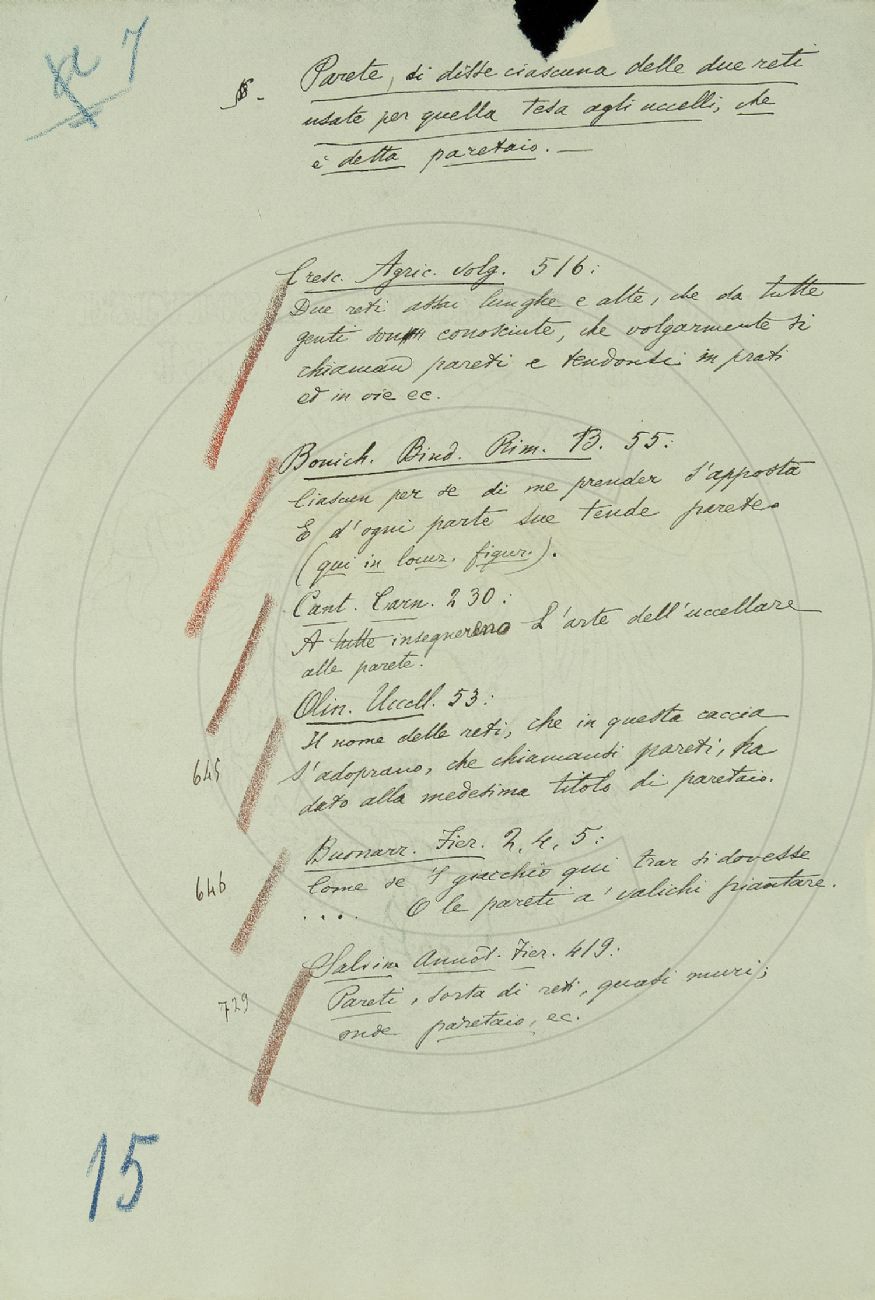 7
§. Parete, si disse ciascuna delle due reti
usate per quella tesa agli uccelli, che
è detta paretaio. —
Cresc. Agric. volg. 516:
Due reti assai lunghe e alte, che da tutte
genti sono conosciute, che volgarmente si
chiaman pareti e tendonsi in prati
ed in vie ec.
Bonich. Bind. Rim. B. 55:
Ciascun per se di me prender s'apposta
E d'ogni parte sue tende parete.
(qui in locuz. figur.).
Cant. Carn. 230:
A tutte insegnereno L'arte dell'uccellare
alle parete.
Olin. Uccell. 53:
Il nome delle reti, che in questa caccia
645 s'adoprano, che chiamansi pareti, ha
dato alla medesima titolo di paretaio.
Buonarr. Fier. 2, 4, 5:
646 Come se 'l giacchio qui trar si dovesse
.... O le pareti a' valichi piantare.
Salvin. Annot. Fier. 419:
729 Pareti, sorta di reti, quasi muri;
onde paretaio, ec.
15